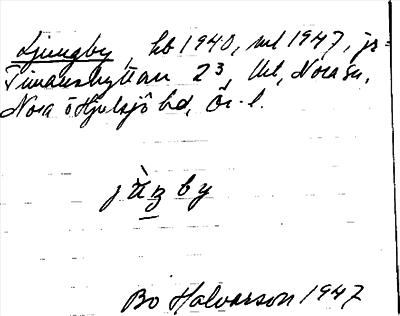 Ljungby, hb 1940, ml 1947, js=
Timanshyttan 23, Utl, Nora sn,
Nora o Hjulsjö bd, Ör. l.
jùŋby
Bo Halvarson 1947